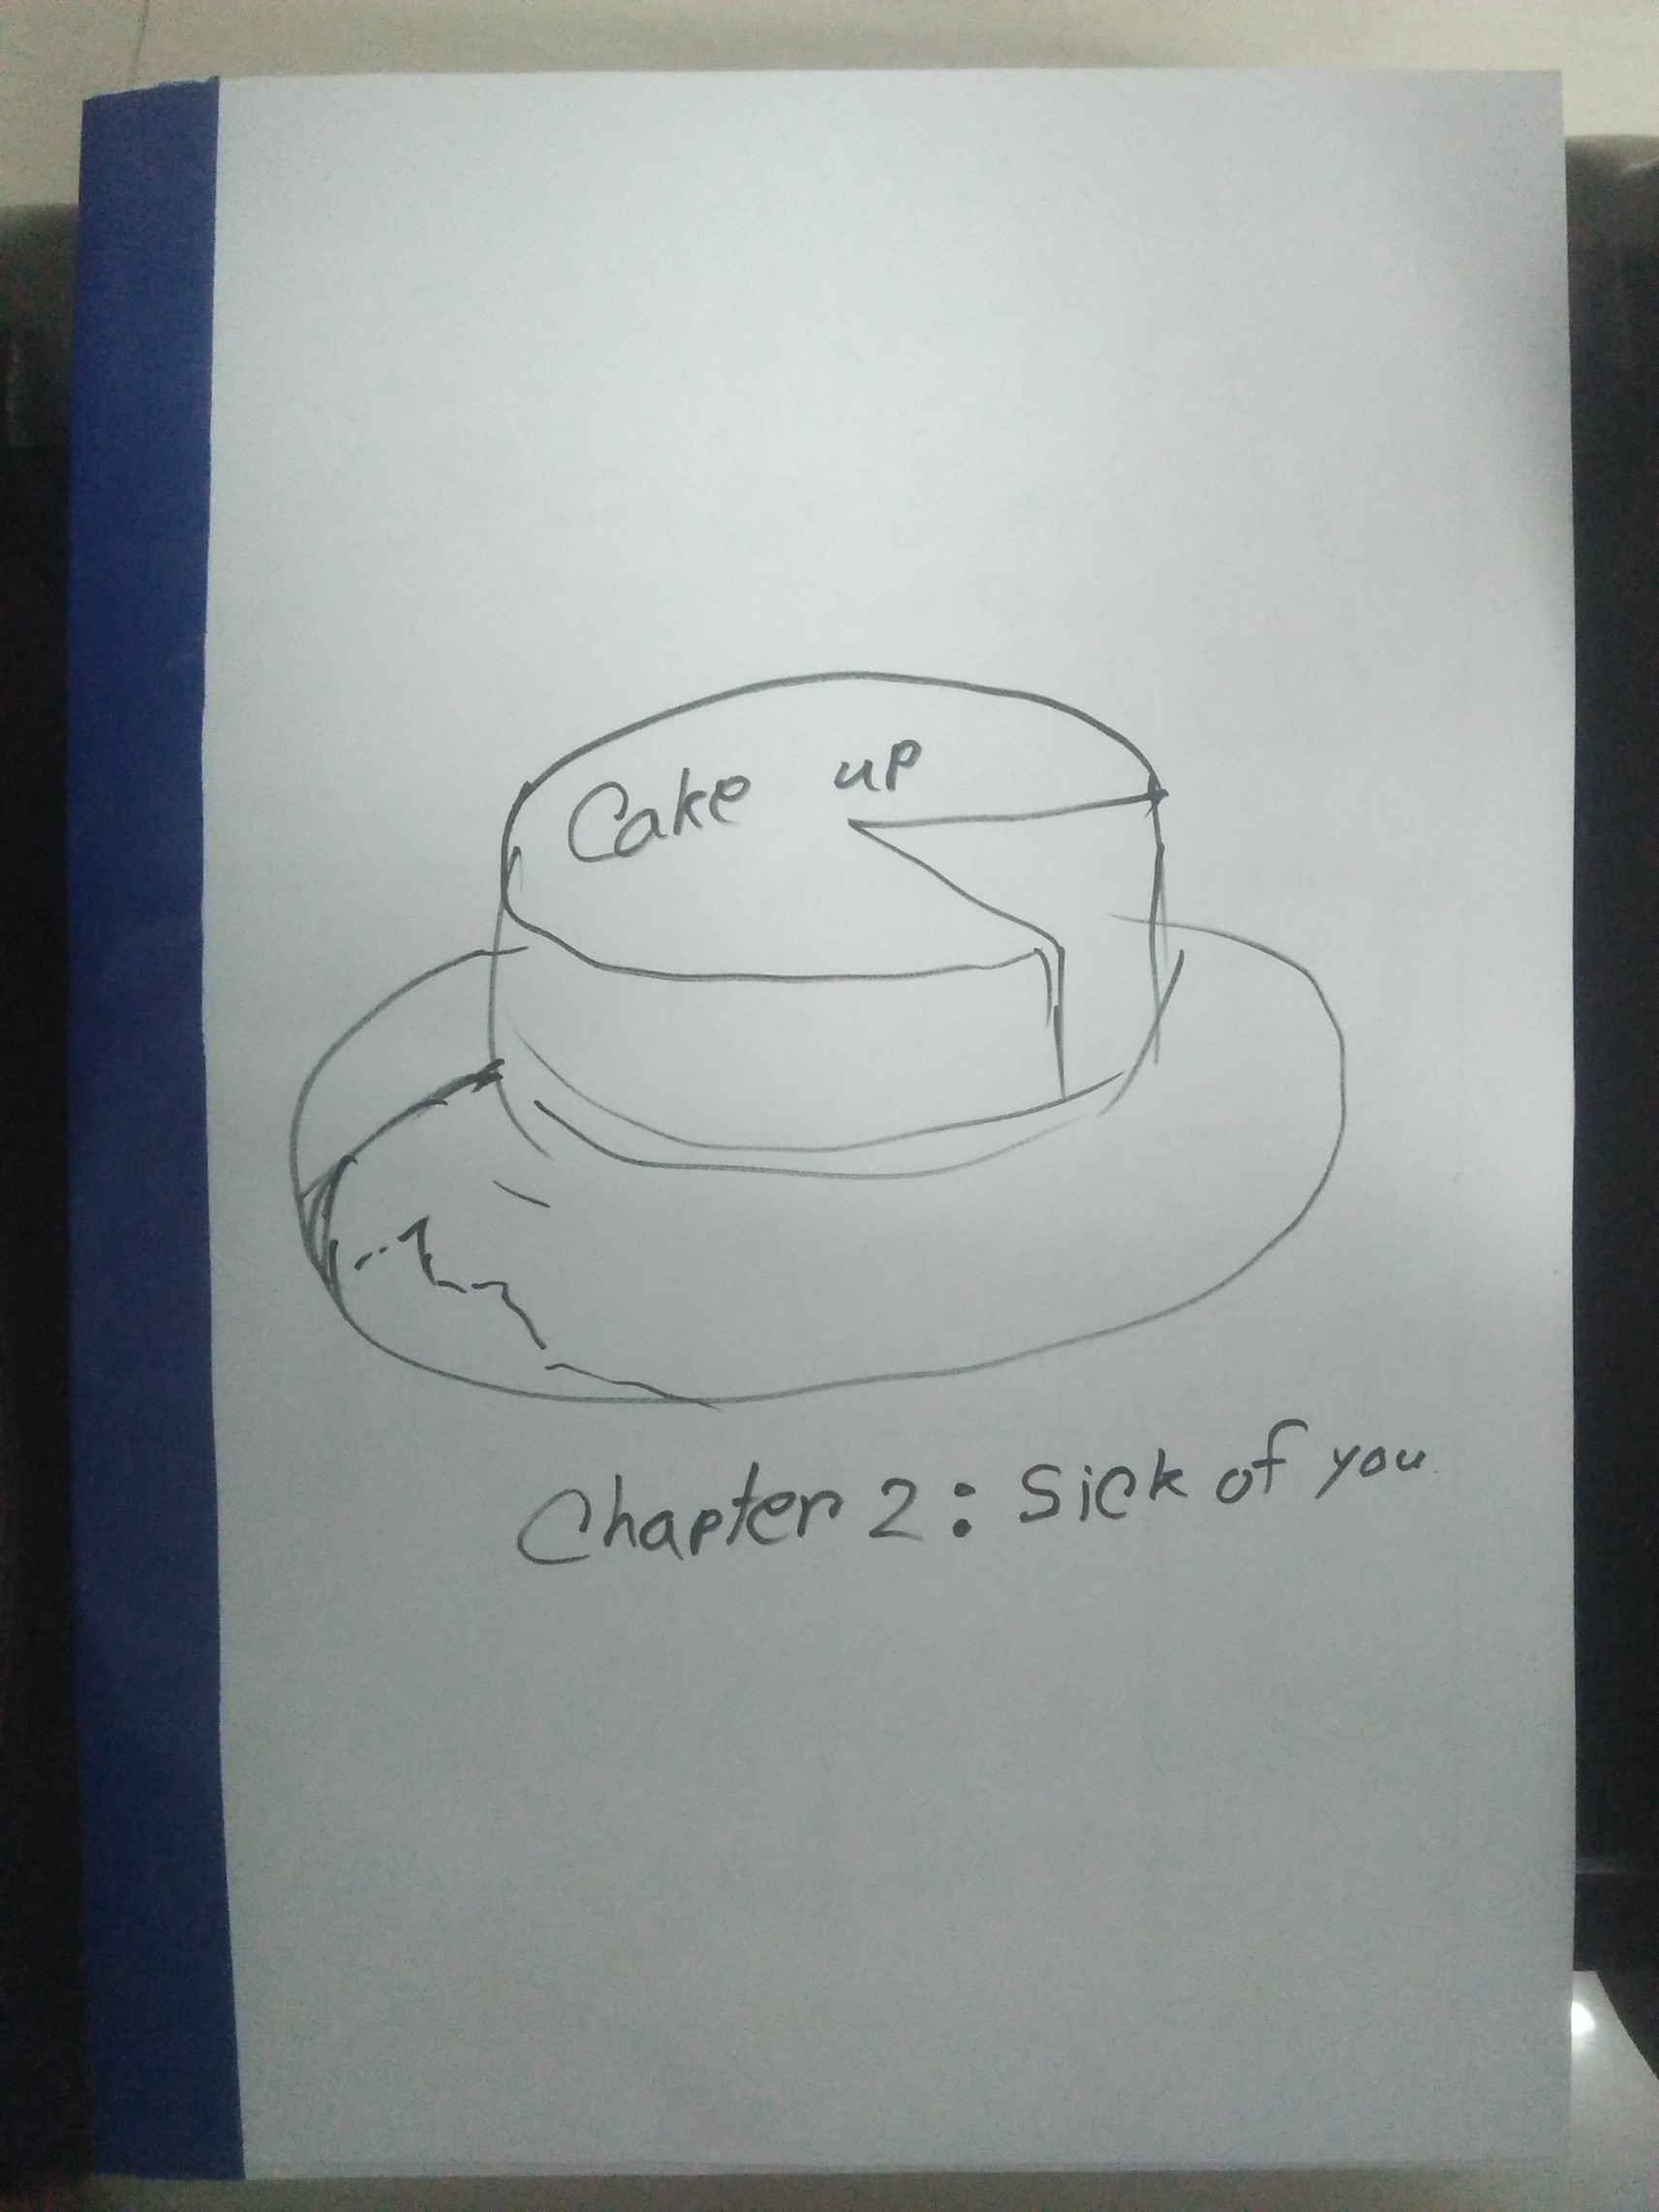 Cake up
Chapter 2: Sick of you